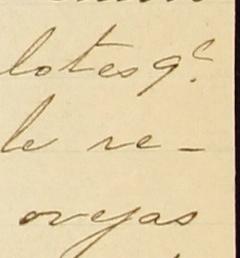 lotes q.e
le re-
ovejas